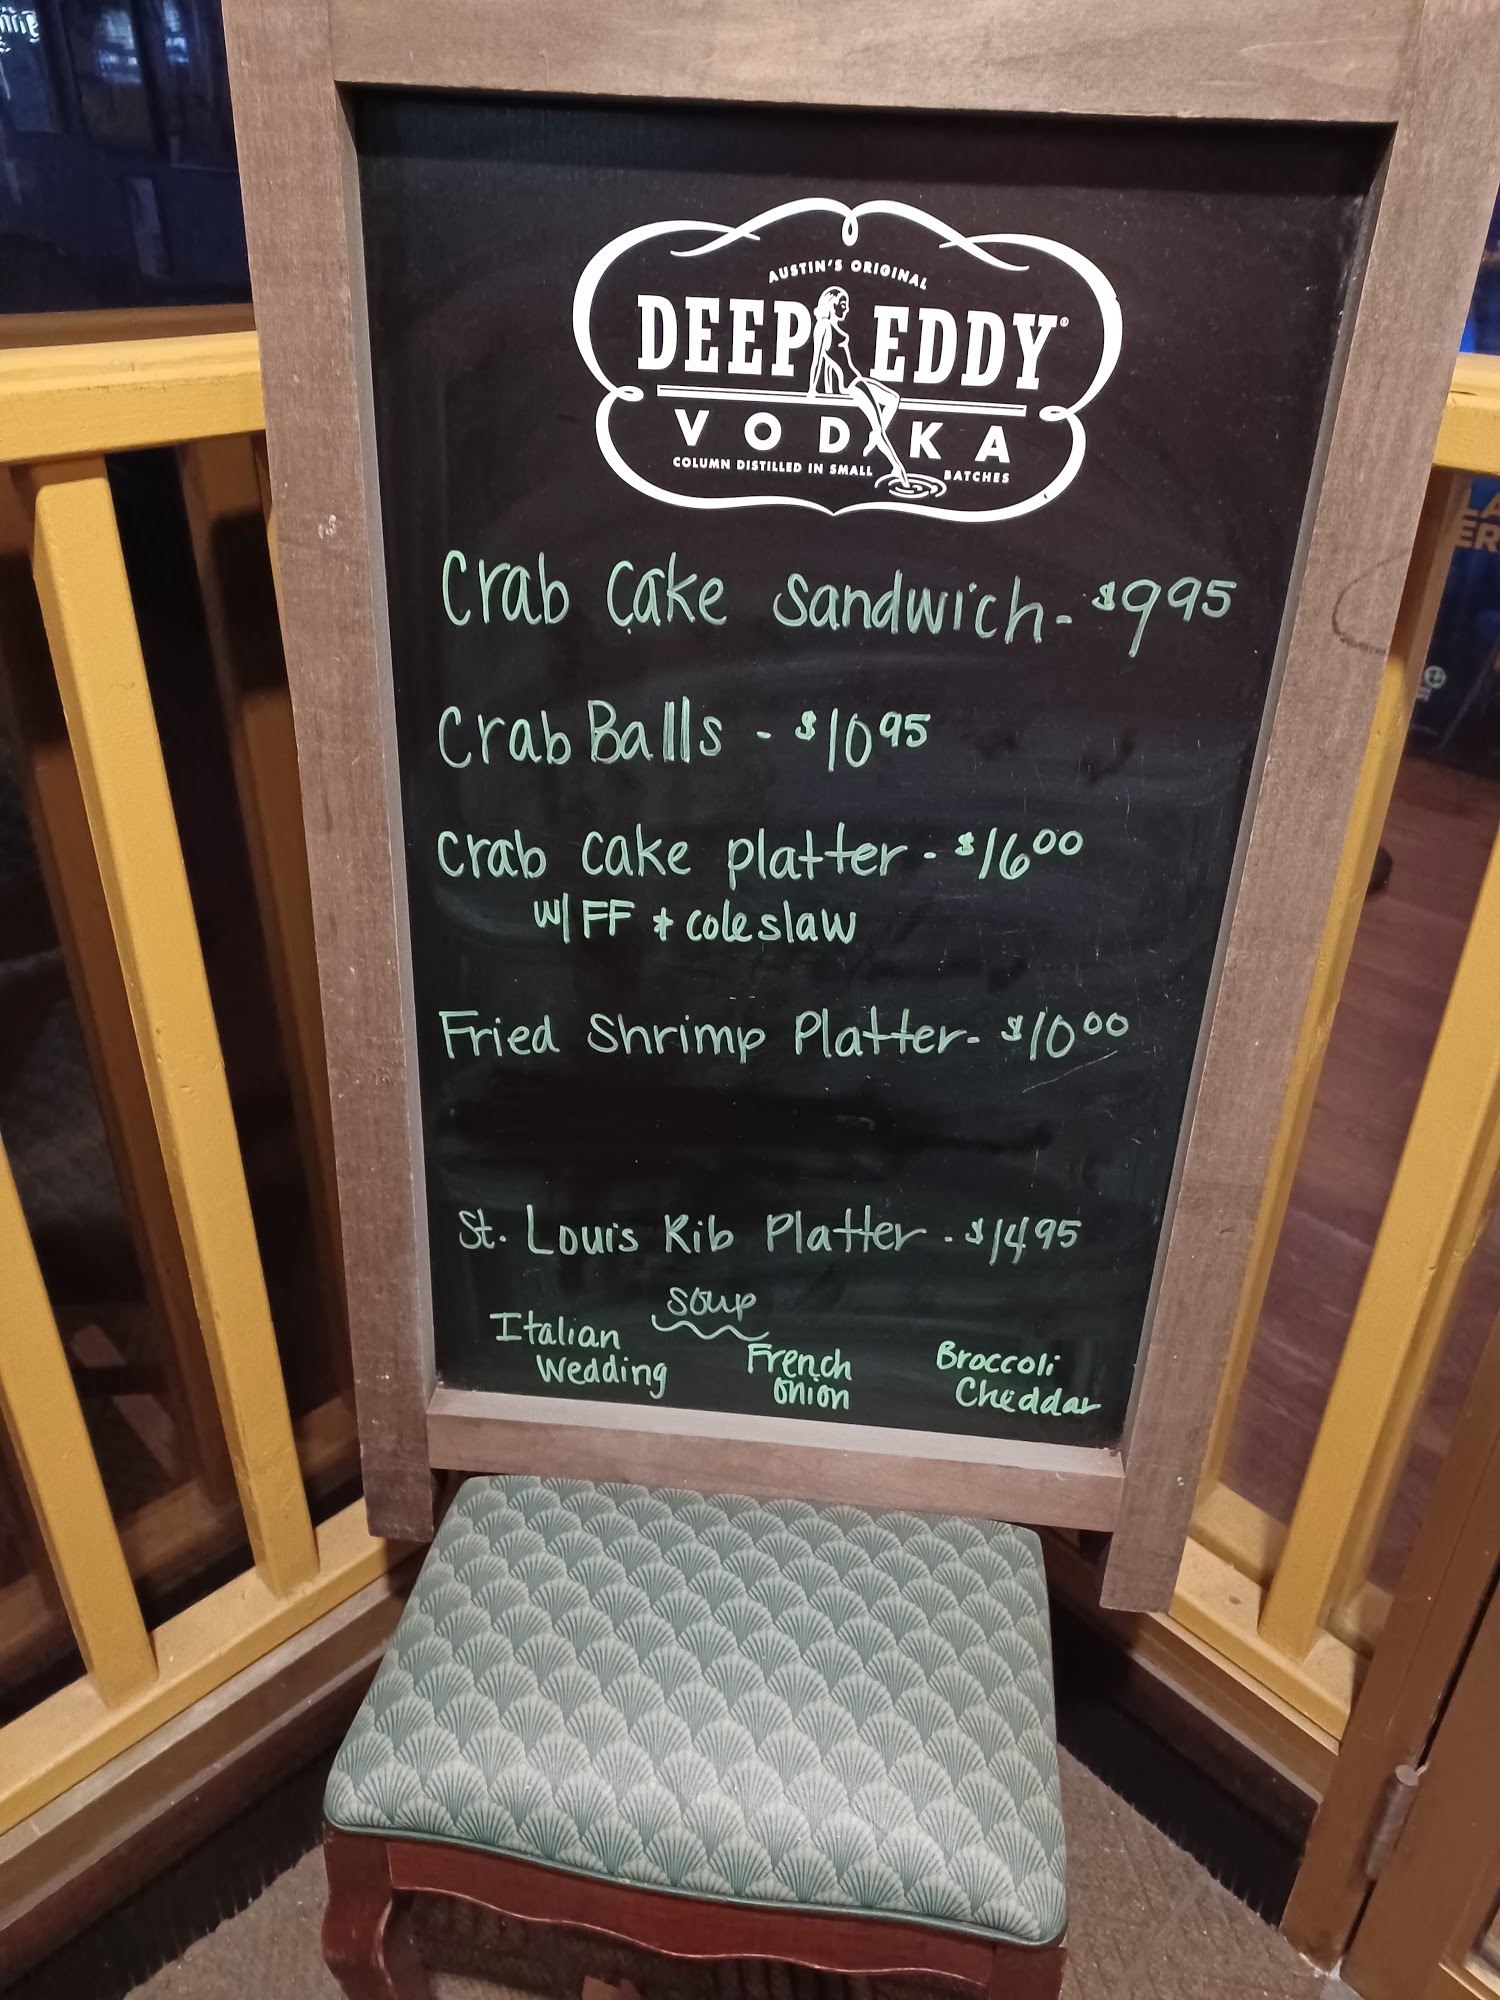 AUSTIN'S ORIGINAL
DEEP EDDY®
VODKA
COLUMN DISTILLED IN SMALL BATCHES
Crab Cake Sandwich - $9 95
Crab Balls - $10 95
Crab Cake Platter - $16 00
w/ FF + coleslaw
Fried Shrimp Platter - $10 00
St. Louis Rib Platter - $14 95
Soup
Italian
Wedding
French
Onion
Broccoli
Cheddar